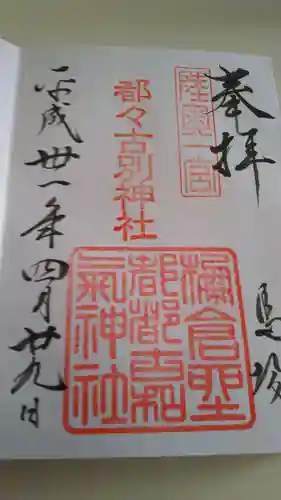 奉拝
馬場
陸奥一宮
都々古別神社
棚倉
都都古和
氣神社
平成卅一年四月廿九日